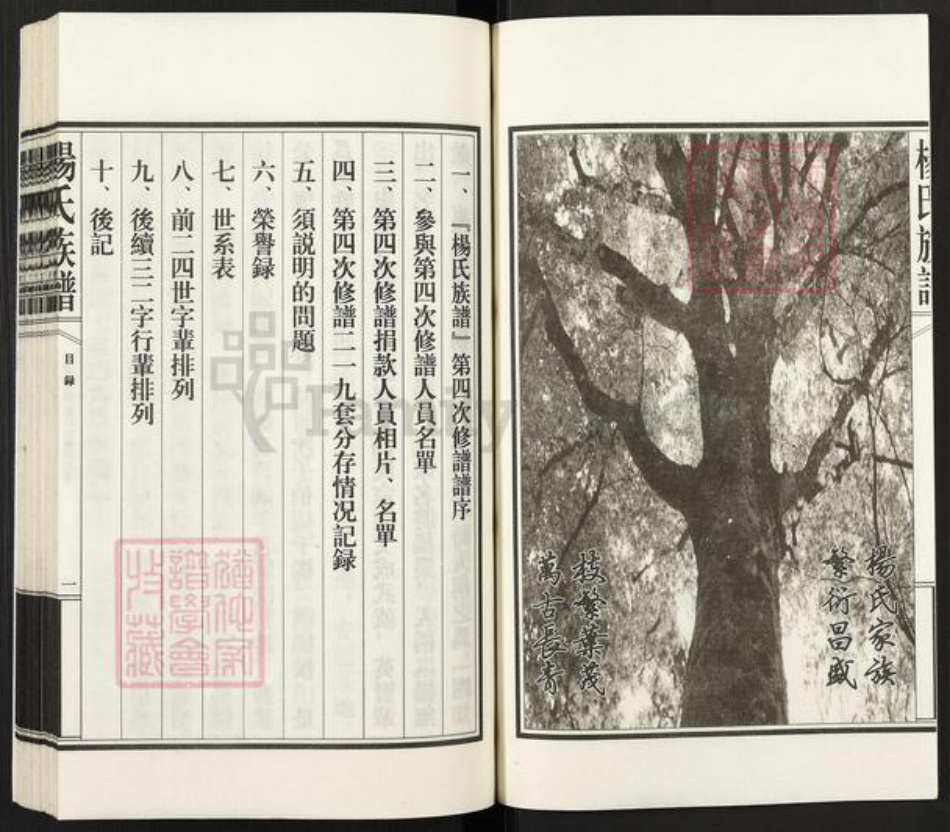 楊氏族譜
楊氏家族
繁衍昌盛
枝繁葉茂
萬古長青
一、『楊氏族譜』第四次修譜譜序
二、參與第四次修譜人員名單
三、第四次修譜捐款人員相片、名單
四、第四次修譜二一九套分存情況記録
五、須説明的問題
六、榮譽録
七、世系表
八、前二四世字輩排列
九、後續三二字行輩排列
十、後記
楊氏族譜
目録
一